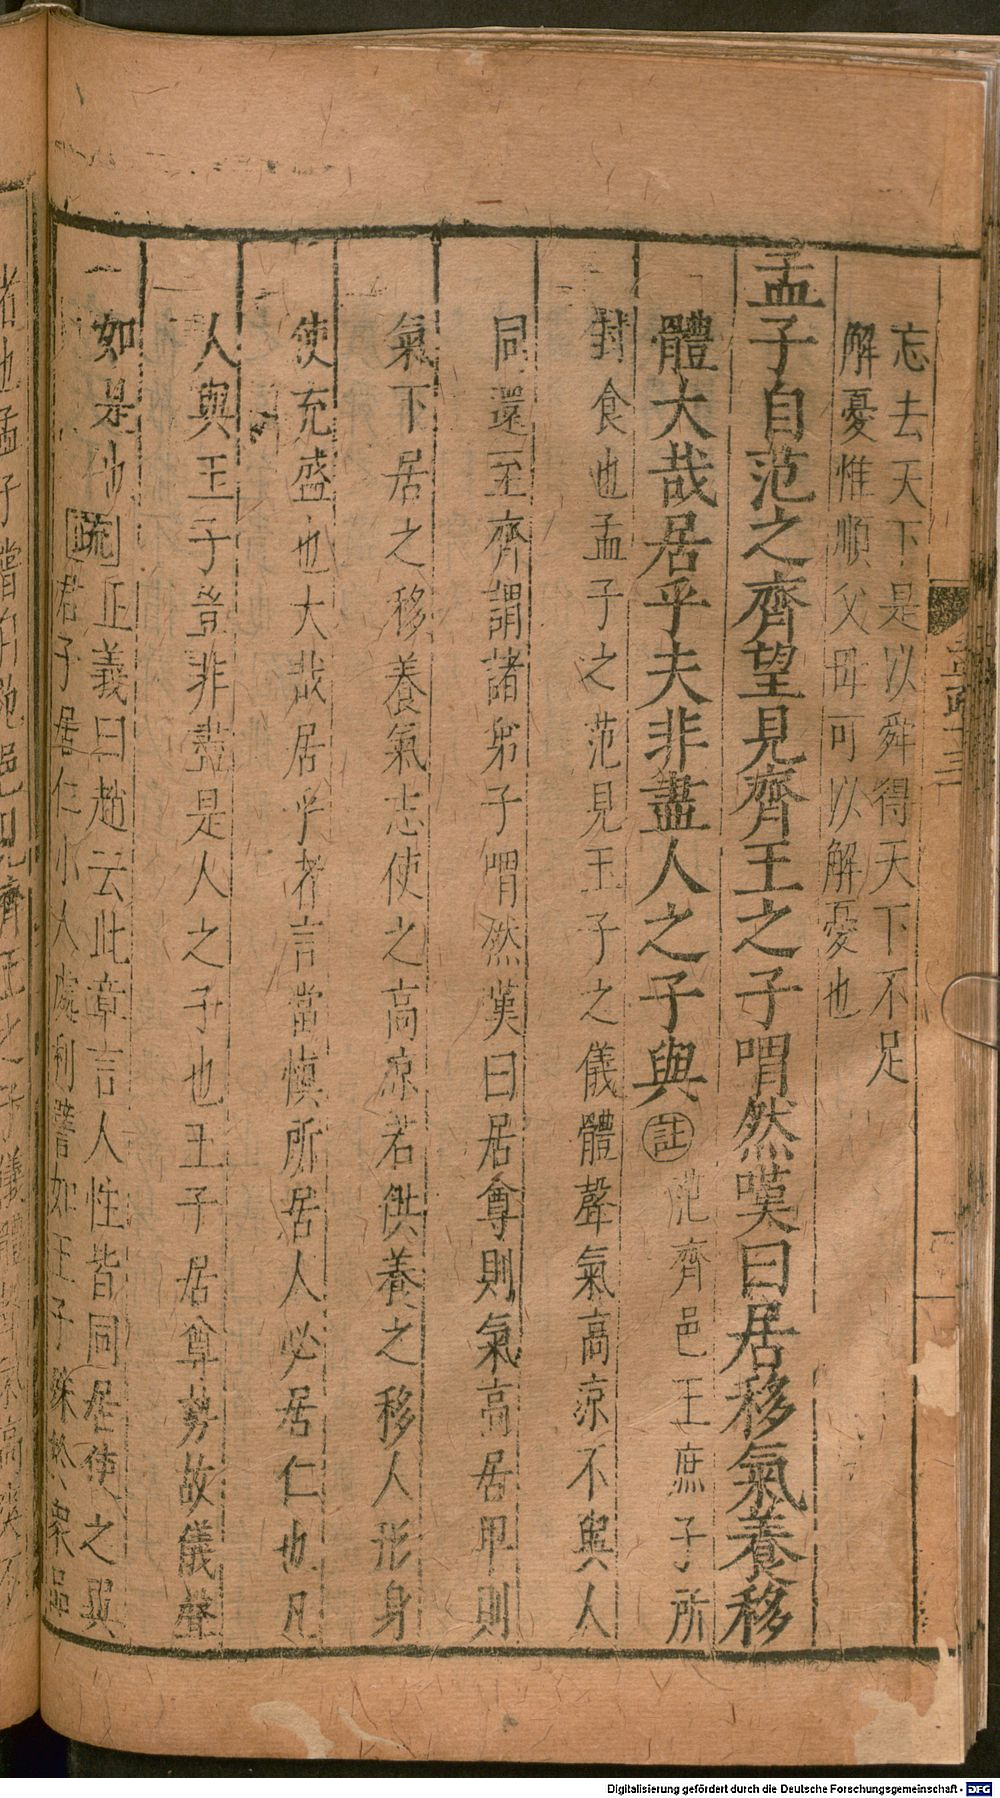 忘去天下是以舜得天下不足
解憂惟順父母可以解憂也
孟子自范之齊望見齊王之子喟然嘆曰居移氣養移
體大哉居乎夫非盡人之子與註范齊邑王庶子所
封食也孟子之范見王子之儀體聲氣高凉不與人
同還至齊謂諸弟子喟然嘆曰居尊則氣高居卑則
氣下居之移養氣志使之高凉若供養之移人形身
使充盛也大哉居乎者言當慎所居人必居仁也凡
人與王子豈非盡是人之子也王子居尊勢故儀聲
如是也疏正義曰趙云此章言人性皆同居使之異
君子居仁小人處利譬如王子殊於衆品
Digitalisierung gefördert durch die Deutsche Forschungsgemeinschaft - DFG